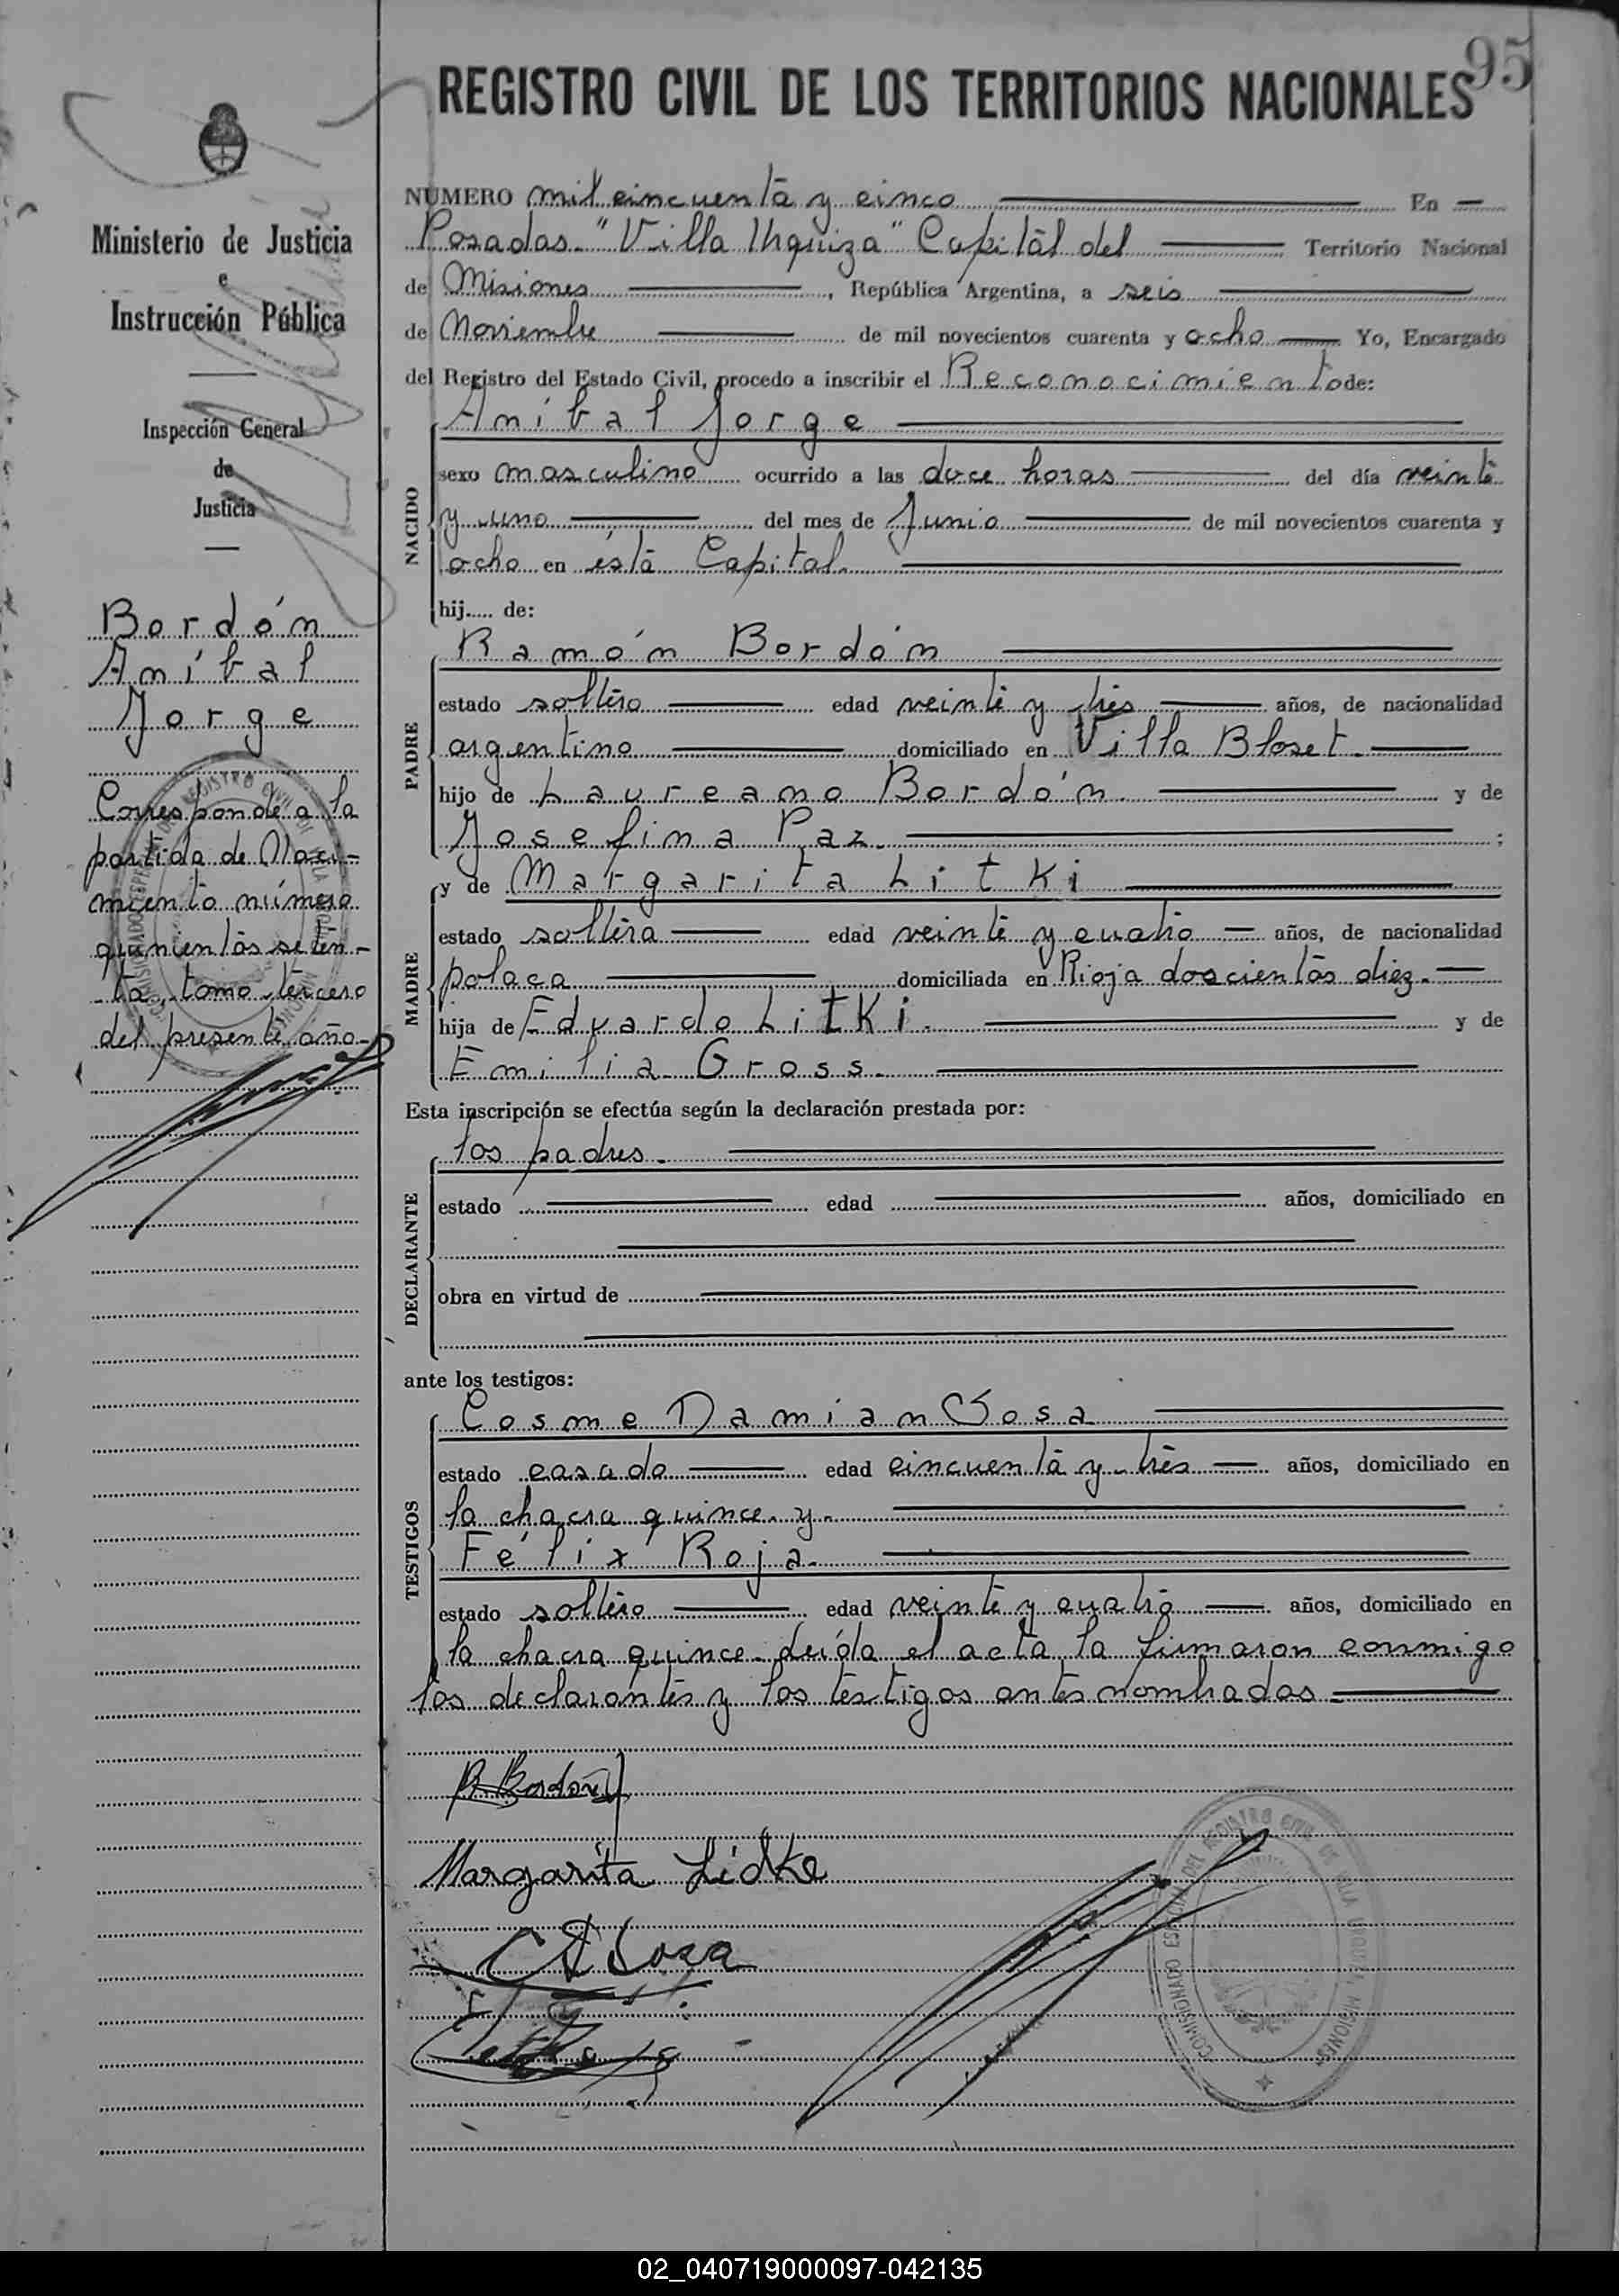 95
REGISTRO CIVIL DE LOS TERRITORIOS NACIONALES
Ministerio de Justicia
e
Instrucción Pública
Inspección General
de
Justicia
Bordón
Aníbal
Jorge
Corresponde a la
partida de Naci-
miento número
quinientos seten-
ta, tomo tercero
del presente año-
NUMERO mil cincuenta y cinco En
Posadas-"Villa Urquiza" Capital del Territorio Nacional
de Misiones, República Argentina, a seis
de Noviembre de mil novecientos cuarenta y ocho Yo, Encargado
del Registro del Estado Civil, procedo a inscribir el Reconocimiento de:
NACIDO
Aníbal Jorge
sexo masculino ocurrido a las doce horas del día veinte
y uno del mes de Junio de mil novecientos cuarenta y
ocho en ésta Capital.
hij..... de:
PADRE
Ramón Bordón
estado soltero edad veinte y tres años, de nacionalidad
argentino domiciliado en Villa Bloset.
hijo de Laureano Bordón. y de
Josefina Paz. ;
MADRE
y de Margarita Litki
estado soltera edad veinte y cuatro años, de nacionalidad
polaca domiciliada en Rioja doscientos diez.
hija de Eduardo Litki. y de
Emilia Gross.
Esta inscripción se efectúa según la declaración prestada por:
DECLARANTE
los padres.
estado edad años, domiciliado en
obra en virtud de
ante los testigos:
TESTIGOS
Cosme Damian Sosa
estado casado edad cincuenta y tres años, domiciliado en
la chacra quince. y.
Félix Roja.
estado soltero edad veinte y cuatro años, domiciliado en
la chacra quince. Leída el acta la firmaron conmigo
los declarantes y los testigos antes nombrados.
R Bordon
Margarita Lidke
C D Sosa
COMISIONADO ESPECIAL DEL REGISTRO CIVIL DE VILLA URQUIZA MISIONES
02_040719000097-042135